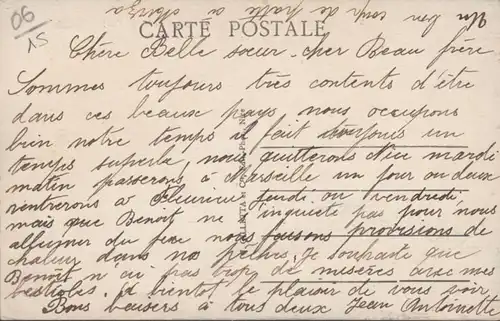 06
15
Un bon coup de patte à
CARTE POSTALE
Chère Belle soeur - cher Beau frère
Sommes toujours très contents d'être
dans ces beaux pays nous occupons
bien notre temps il fait toujours un
temps superbe, nous quitterons Nice mardi
matin passerons à Marseille un jour ou deux
rentrerons à Fleurieu jeudi ou vendredi
mais que Benoit ne s'inquiète pas pour nous
allumer du feu nous faisons provisions de
chaleur dans nos Je souhaite que
Benoit n'ai pas trop de misères avec mes
bestioles. A bientôt le plaisir de vous voir
Bons baisers à tous deux Jean Antoinette